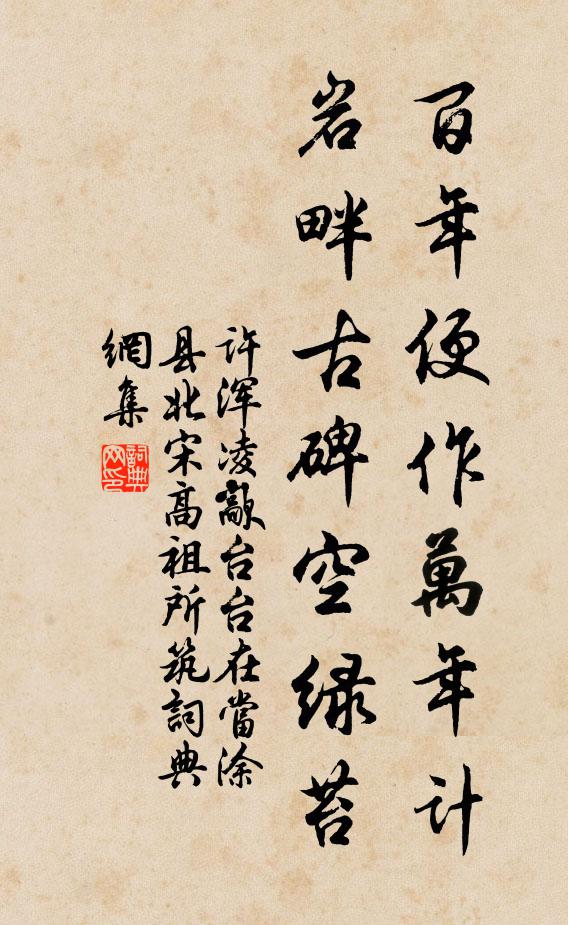 百年便作萬年計
岩畔古碑空绿苔
许浑凌歊台台在當涂
县北宋高祖所筑詞典
網集
詞典
网印